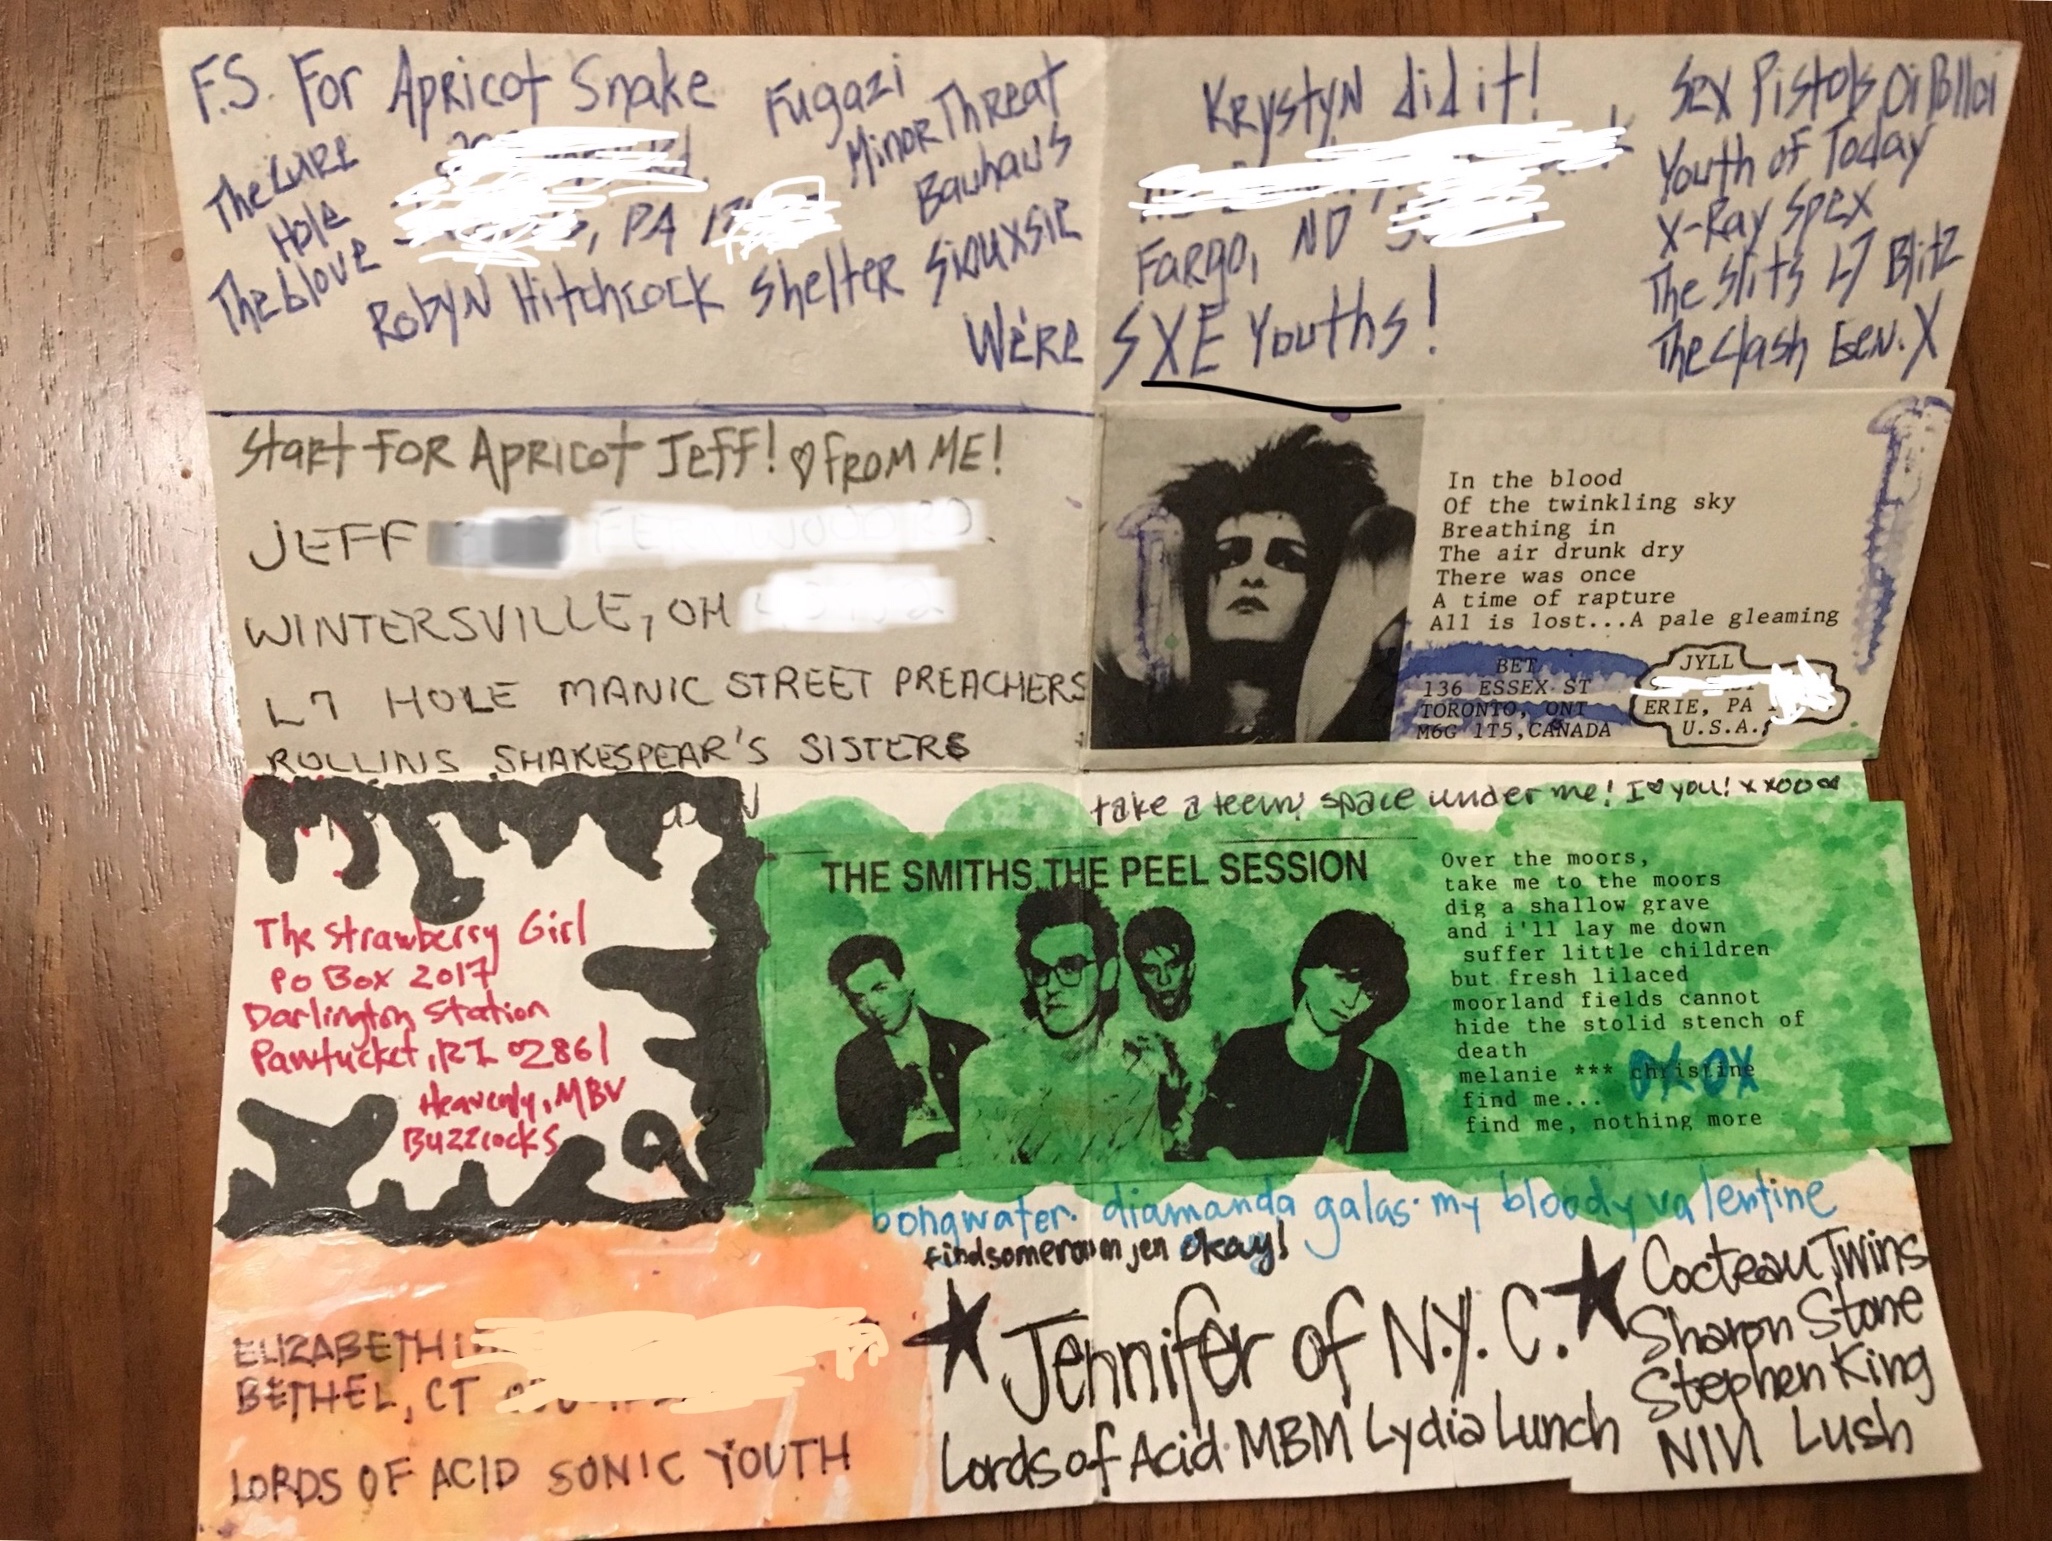 F.S. For Apricot Snake
The Cure
Hole
The blove
PA
Fugazi
Minor Threat
Bauhaus
Robyn Hitchcock Shelter Siouxsie
Krystyn did it!
Fargo, ND
We're SXE Youths!
Sex Pistols Oi Polloi
Youth of Today
X-Ray Spex
The Slits L7 Blitz
The Clash Gen. X
Start FOR Apricot Jeff! ♡ FROM ME!
JEFF
WINTERSVILLE, OH
L7 HOLE MANIC STREET PREACHERS
ROLLINS SHAKESPEAR'S SISTERS
In the blood
Of the twinkling sky
Breathing in
The air drunk dry
There was once
A time of rapture
All is lost...A pale gleaming
BET
136 ESSEX ST
TORONTO, ONT
M6G 1T5,CANADA
JYLL
ERIE, PA
U.S.A.
take a teeny space under me! I ♥ you! xxoo
The Strawberry Girl
PO Box 2017
Darlington Station
Pawtucket, RI 02861
Heavenly, MBV
Buzzcocks
THE SMITHS THE PEEL SESSION
Over the moors,
take me to the moors
dig a shallow grave
and i'll lay me down
suffer little children
but fresh lilaced
moorland fields cannot
hide the stolid stench of
death
melanie *** christine
find me...
find me, nothing more
bongwater. diamanda galas. my bloody valentine
find some room jen okay!
ELIZABETH
BETHEL, CT
LORDS OF ACID SONIC YOUTH
★ Jennifer of N.Y.C. ★
Lords of Acid. MBM Lydia Lunch
Cocteau Twins
Sharon Stone
Stephen King
NIN Lush